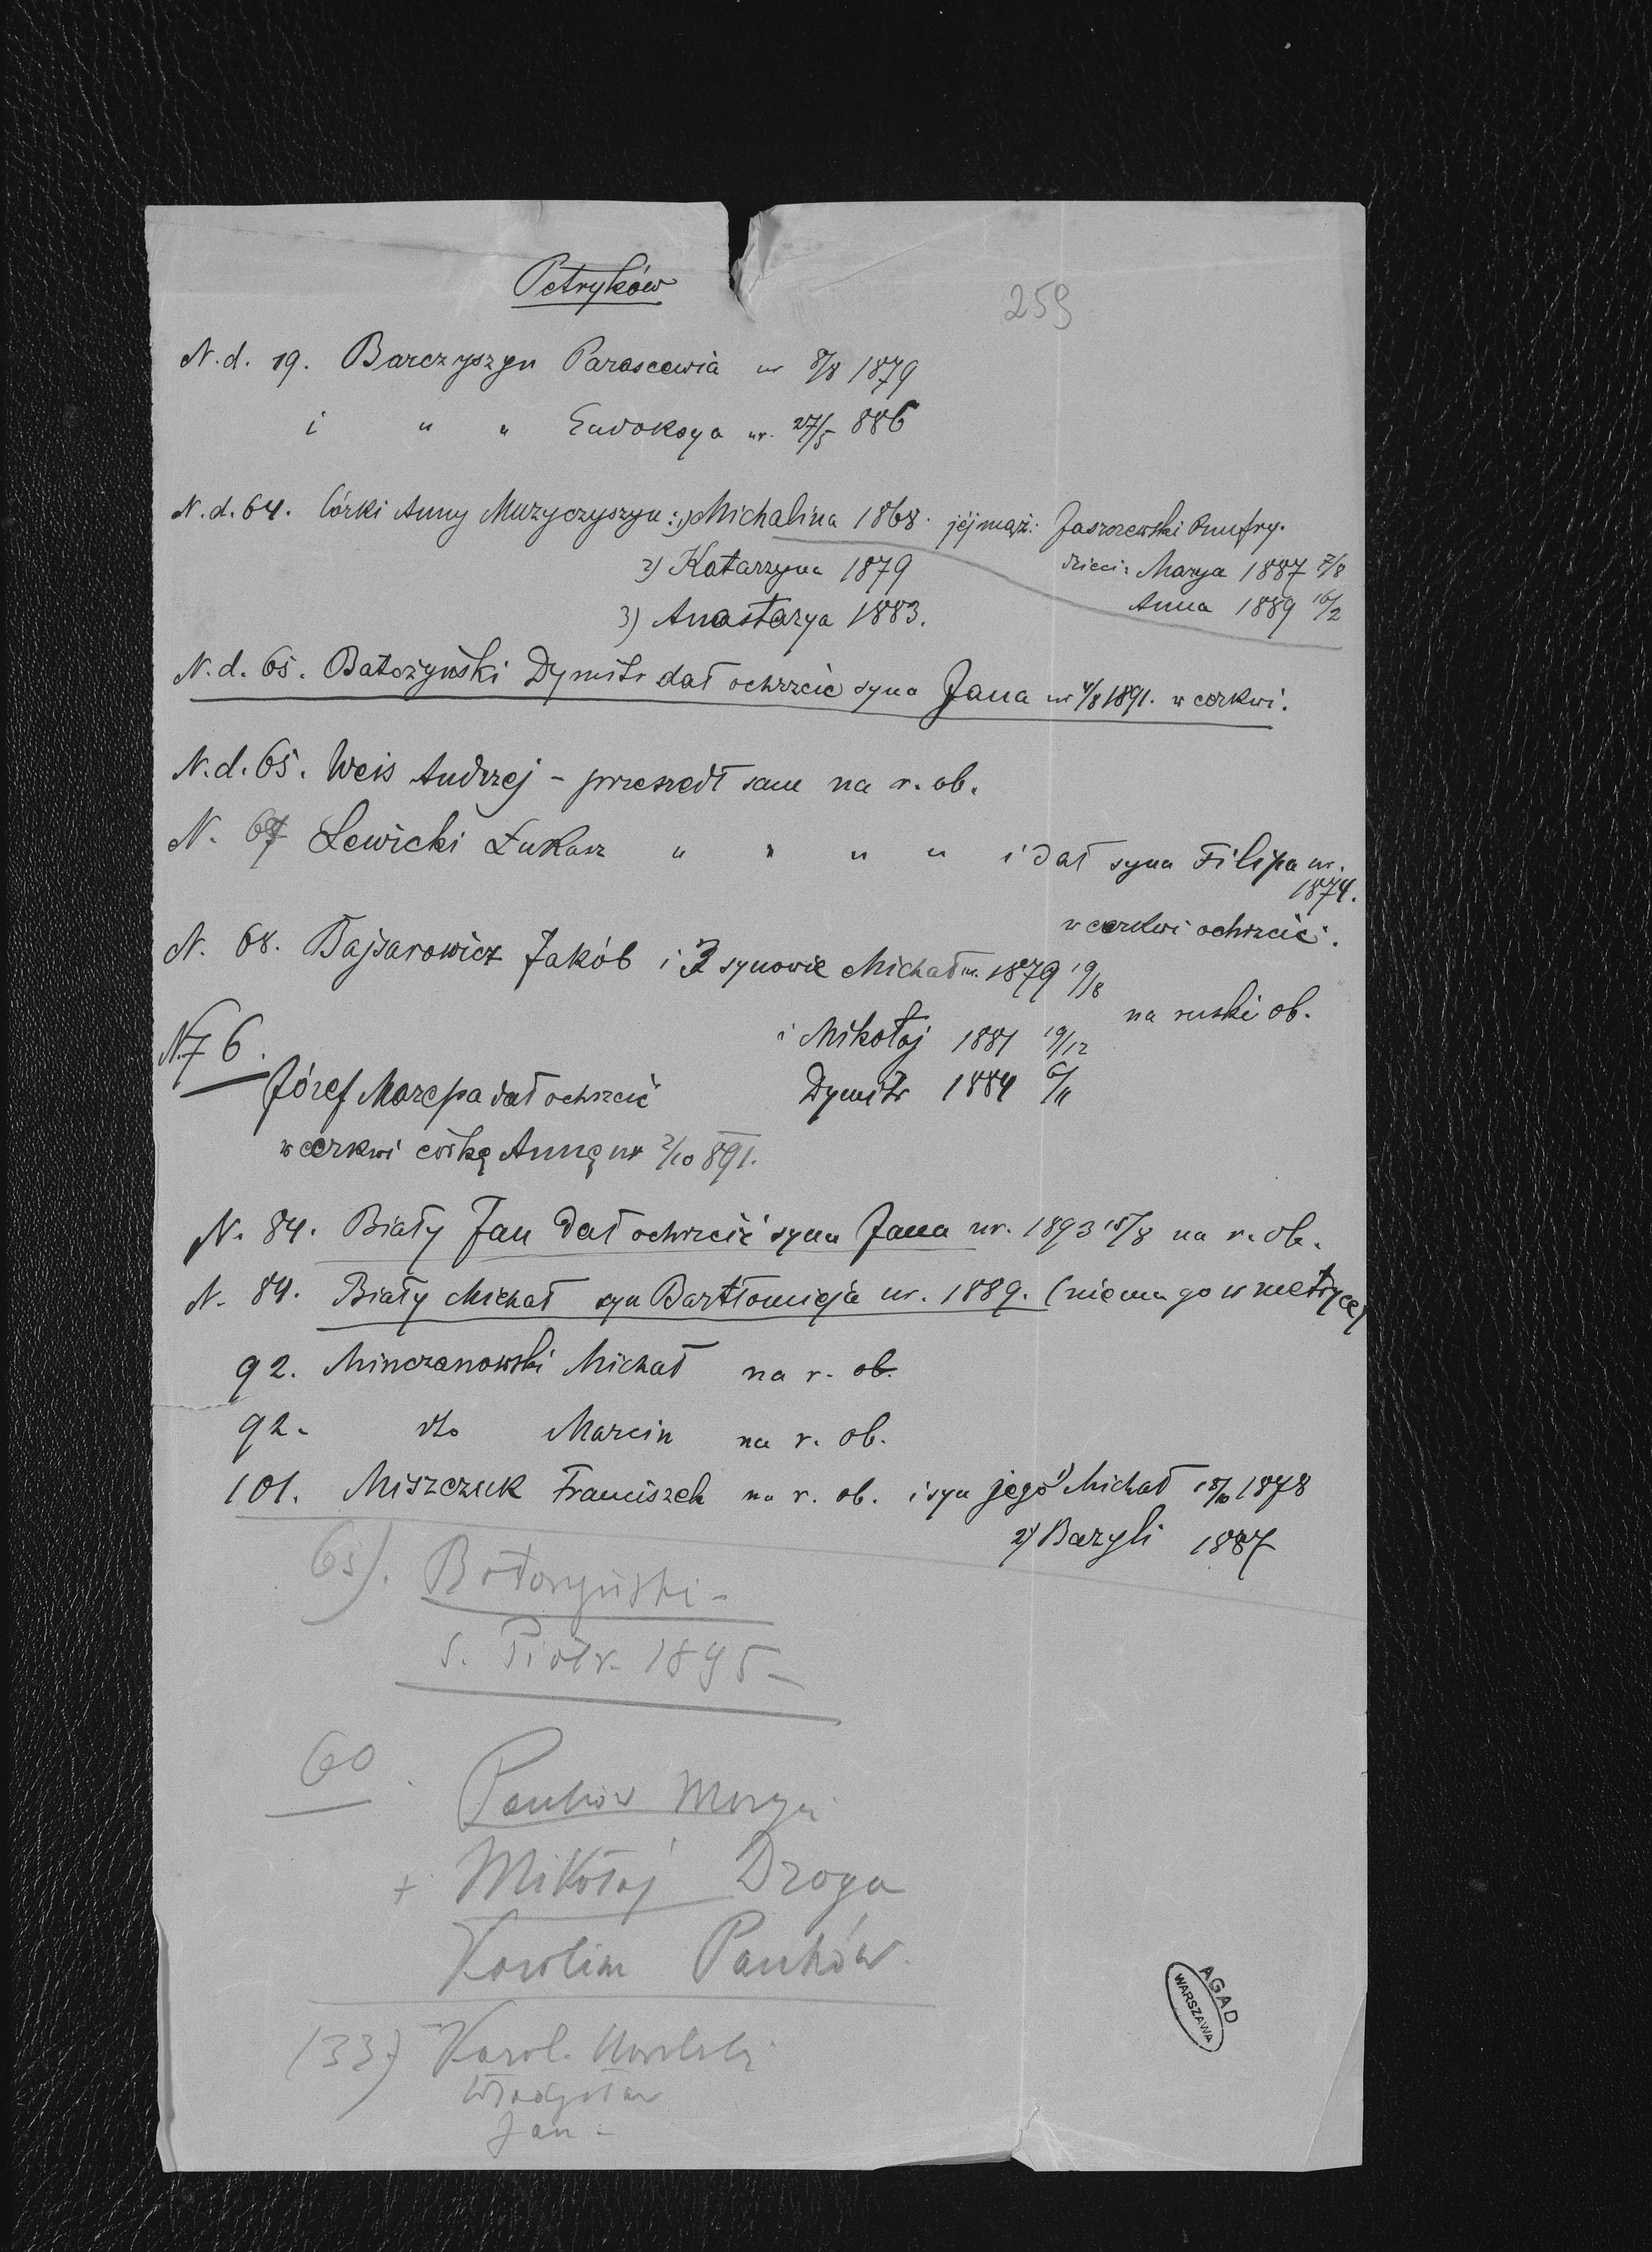 Petryków
259
N. d. 19. Barczyszyn Parascewia ur 8/8 1879
i " " Eudoksya ur. 27/5 886
N. d. 64. Córki Anny Muzyczyszyn: 1) Michalina 1868. jej mąż: Jaszczewski Onufry.
2) Katarzyna 1879 dzieci: Marya 1887 2/8
3) Anastazya 1883. Anna 1889 16/2
N. d. 65. Batożyński Dymitr dał ochrzcić syna Jana ur 4/8 1891. w cerkwi.
N. d. 65. Weis Andrzej - przeszedł sam na r. ob.
N. 67 Lewicki Łukasz " " " " i dał syna Filipa ur.
1874.
w cerkwi ochrzcić.
N. 68. Bajsarowicz Jakób i 3 synowie Michał ur. 1879 19/8
na ruski ob.
i Mikołaj 1881 19/12
Dymitr 1884 6/11
N 76.
Józef Mazepa dał ochrzcić
w cerkwi córkę Annę ur 2/10 891.
N. 84. Biały Jan dał ochrzcić syna Jana ur. 1893 15/8 na r. ob.
N. 84. Biały Michał syn Bartłomieja ur. 1889. (niema go w metryce)
92. Minczanowski Michał na r. ob.
92. dto Marcin na r. ob.
101. Miszczuk Franciszek na r. ob. i syn jego 1) Michał 18/10 1878
2) Bazyli 1887
65). Botożyński -
s. Piotr. 1895 -
60. Pańków Marya
+ Mikołaj Droga
Karolina Pańków.
(33) Karol.
Władysław
Jan -
AGAD
WARSZAWA